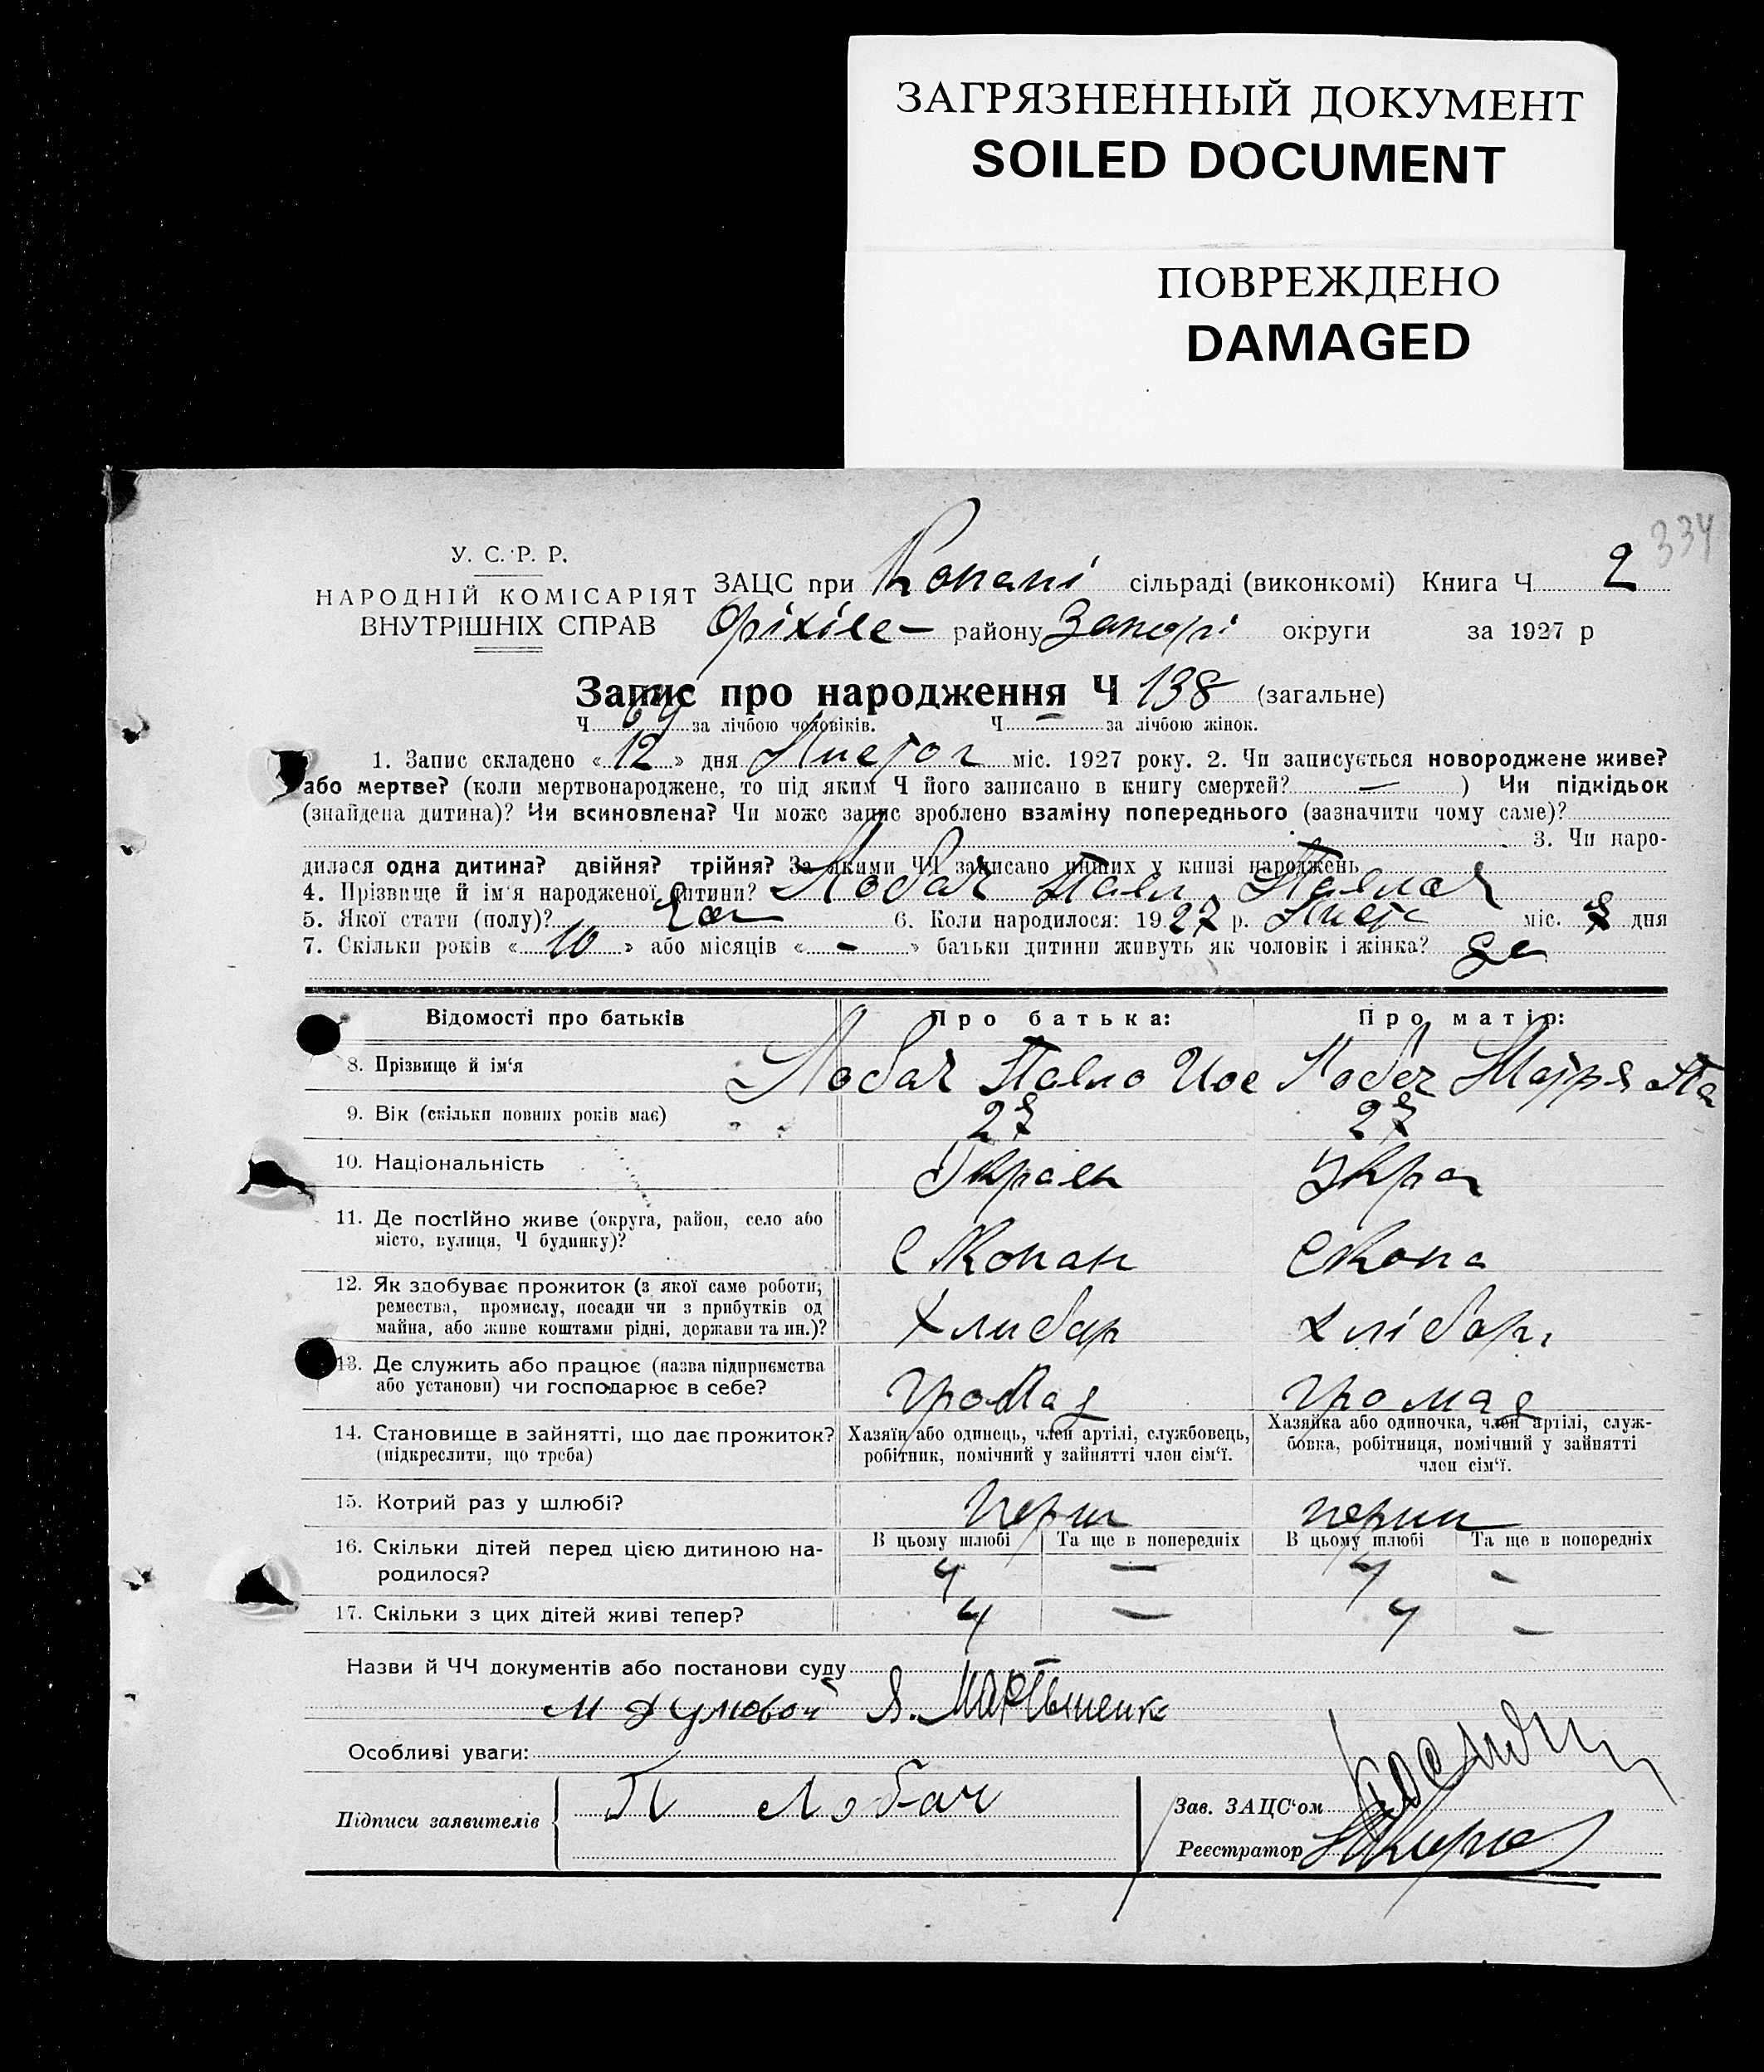 ЗАГРЯЗНЕННЫЙ ДОКУМЕНТ
SOILED DOCUMENT
ПОВРЕЖДЕНО
DAMAGED
334
У. С. Р. Р.
НАРОДНІЙ КОМІСАРІЯТ
ВНУТРІШНІХ СПРАВ
ЗАЦС при Копані сільраді (виконкомі) Книга Ч 2
Оріхіве- району Запорі округи за 1927 р
Запис про народження Ч 138 (загальне)
Ч 69 за лічбою чоловіків. Ч — за лічбою жінок.
1. Запис складено « 12 » дня міс. 1927 року. 2. Чи записується новороджене живе?
або мертве? (коли мертвонароджене, то під яким Ч його записано в книгу смертей? — ) Чи підкідьок
(знайдена дитина)? Чи всиновлена? Чи може запис зроблено взаміну попереднього (зазначити чому саме)?
3. Чи наро-
дилася одна дитина? двійня? трійня? За якими ЧЧ записано инших у книзі народжень
4. Прізвище й ім'я народженої дитини? Лобач Павл Павлов
5. Якої стати (полу)? 6. Коли народилося: 1927 р. міс. дня
7. Скільки років « 10 » або місяців « - » батьки дитини живуть як чоловік і жінка? да
Відомості про батьків Про батька: Про матір:
8. Прізвище й ім'я Лобач Павло Иос Лобач Марря Па
9. Вік (скільки повних років має) 28 28
10. Національність Украен Укра
11. Де постійно живе (округа, район, село або
місто, вулиця, Ч будинку)? с Копан с Копа
12. Як здобуває прожиток (з якої саме роботи;
ремества, промислу, посади чи з прибутків од
майна, або живе коштами рідні, держави та ин.)? Хлибар Хлібар
13. Де служить або працює (назва підприємства
або установи) чи господарює в себе? Громад Громад
14. Становище в зайнятті, що дає прожиток?
(підкреслити, що треба)
Хазяїн або одинець, член артілі, службовець,
робітник, помічний у зайнятті член сім'ї.
Хазяйка або одиночка, член артілі, служ-
бовка, робітниця, помічний у зайнятті
член сім'ї.
15. Котрий раз у шлюбі? перш перш
В цьому шлюбі Та ще в попередніх В цьому шлюбі Та ще в попередніх
16. Скільки дітей перед цією дитиною на-
родилося? 4 — 4 -
17. Скільки з цих дітей живі тепер? 4 — 4 -
Назви й ЧЧ документів або постанови суду
Я. Мартыненк
Особливі уваги:
Підписи заявителів П Лобач
Зав. ЗАЦС'ом
Реєстратор